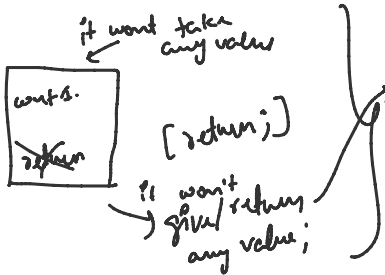 it wont take
any value
[return;]
return
it won't
give/return
any value;